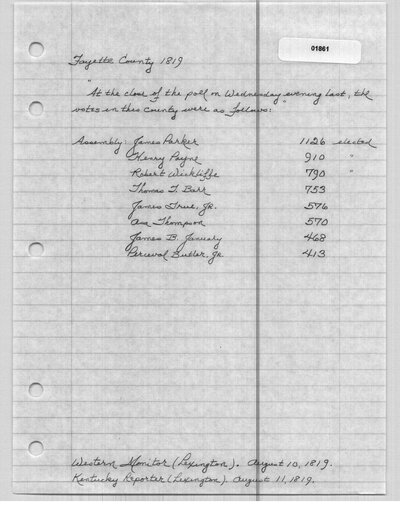 01861
Fayette County 1819
"At the close of the poll on Wednesday evening last, the
votes in this County were as follows:"
Assembly: James Parker 1126 elected
Henry Payne 910 "
Robert Wickliffe 790 "
Thomas T. Barr 753
James True, Jr. 576
Asa Thompson 570
James B. January 468
Percival Butler, Jr. 413
Western Monitor (Lexington). August 10, 1819.
Kentucky Reporter (Lexington). August 11, 1819.